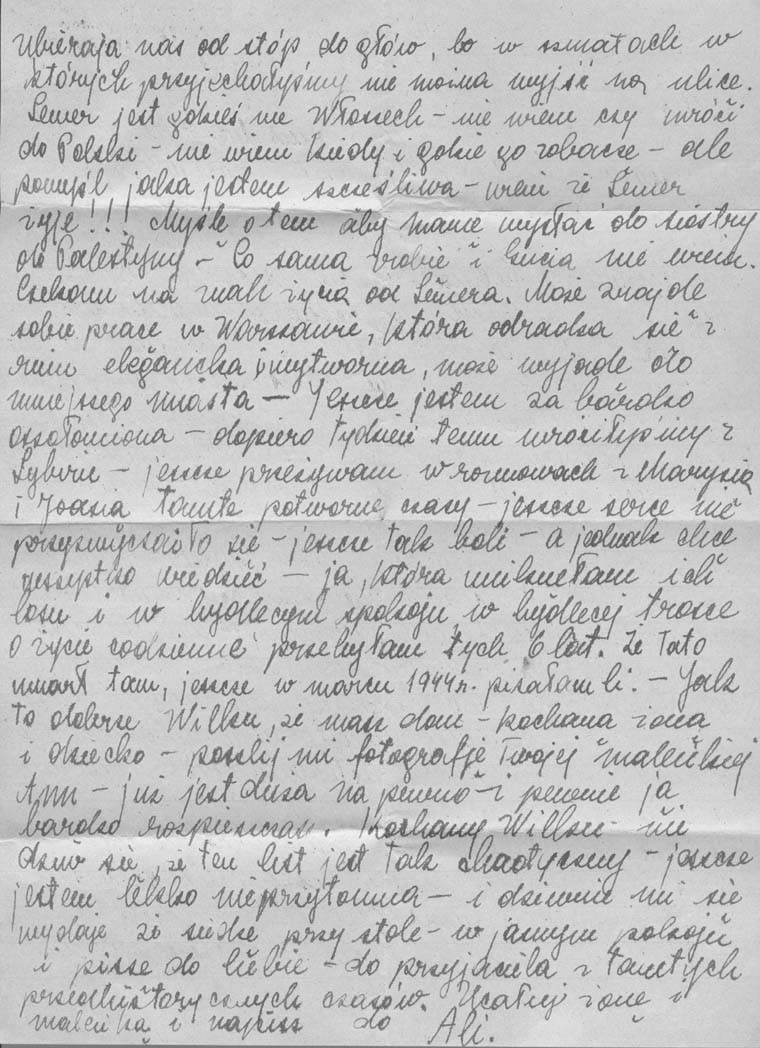 Ubierają nas od stóp do głów, bo w szmatach w
których przyjechałyśmy nie można wyjść na ulice.
Semer jest gdzieś we Włoszech – nie wiem czy wróci
do Polski – nie wiem kiedy i gdzie go zobacze – ale
pomyśl jaka jestem szcześliwa – wiem że Semer
żyje!!! Myśle o tem aby mame wysłać do siostry
do Palestyny – Co sama zrobie i Lucia nie wiem.
Czekam na znak życia od Semera. Może znajde
sobie prace w Warszawie, która odradza sie z
ruin elegancka i wytworna, może wyjade do
mniejszego miasta – Jeszcze jestem za bardzo
oszołomiona – dopiero tydzień temu wróciłyśmy z
Sybiru – jeszcze przeżywam w rozmowach z Marysią
i Joasią tamte potworne czasy – jeszcze serce nie
przyzwyczaiło sie – jeszcze tak boli – a jednak chce
wszystko wiedzieć – ja, która uniknełam ich
losu i w bydlecym spokoju, w bydlecej trosce
o życie codzienne przebyłam tych 6 lat. Że tato
umarł tam, jeszcze w marcu 1944 r. pisałam Ci. – Jak
to dobrze Wilku, że masz dom – kochana żona
i dziecko – poszlij mi fotografje Twojej maleńkiej
Ann – już jest duża na pewno i pewnie ja
bardzo rozpieszczasz. Kochany Wilku nie
dziw sie, że ten list jest tak chaotyczny – jeszcze
jestem lekko nieprzytomna – i dziwnie mi sie
wydaje że siedze przy stole – w jasnym pokoju
i pisze do Ciebie – do przyjaciela z tamtych
przedhistorycznych czasów. Ucałuj żone i
maleńką i napisz do Ali.